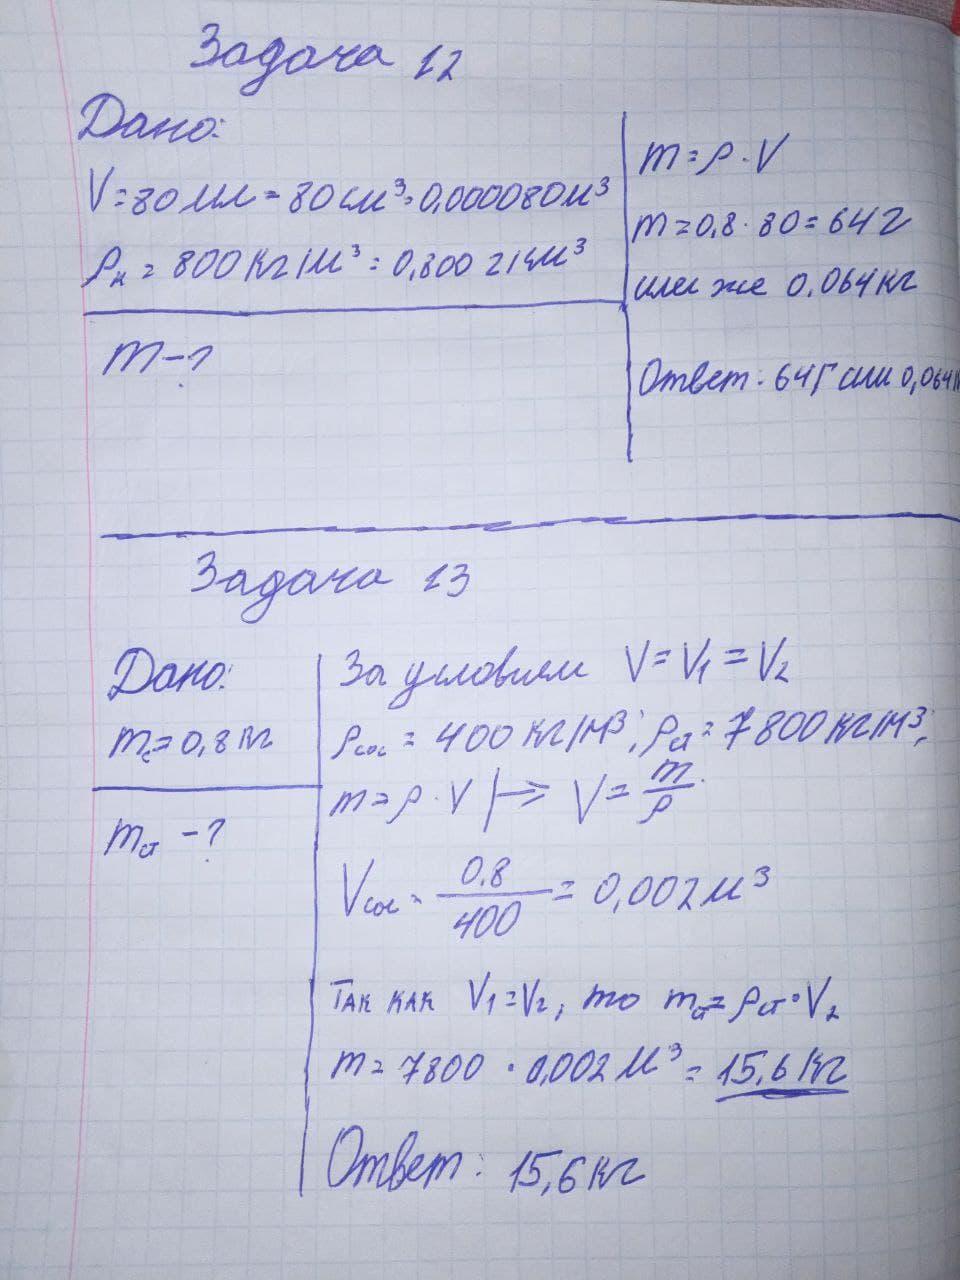 Задача 12
Дано:
V=80мл=80см³=0,000080м³
ρк = 800 кг/м³ = 0,800 г/см³
m-?
m=ρ·V
m=0,8·80=64г
или же 0,064кг
Ответ: 64г или 0,064к
Задача 13
Дано:
mс=0,8кг
mст -?
За условием V=V₁=V₂
ρсос = 400 кг/м³; ρст=7800кг/м³;
m=ρ·V |→ V=m/ρ.
Vсос = 0,8/400 = 0,002м³
Так как V₁=V₂, то mст=ρст·V₂
m=7800 · 0,002м³ = 15,6кг
Ответ: 15,6кг